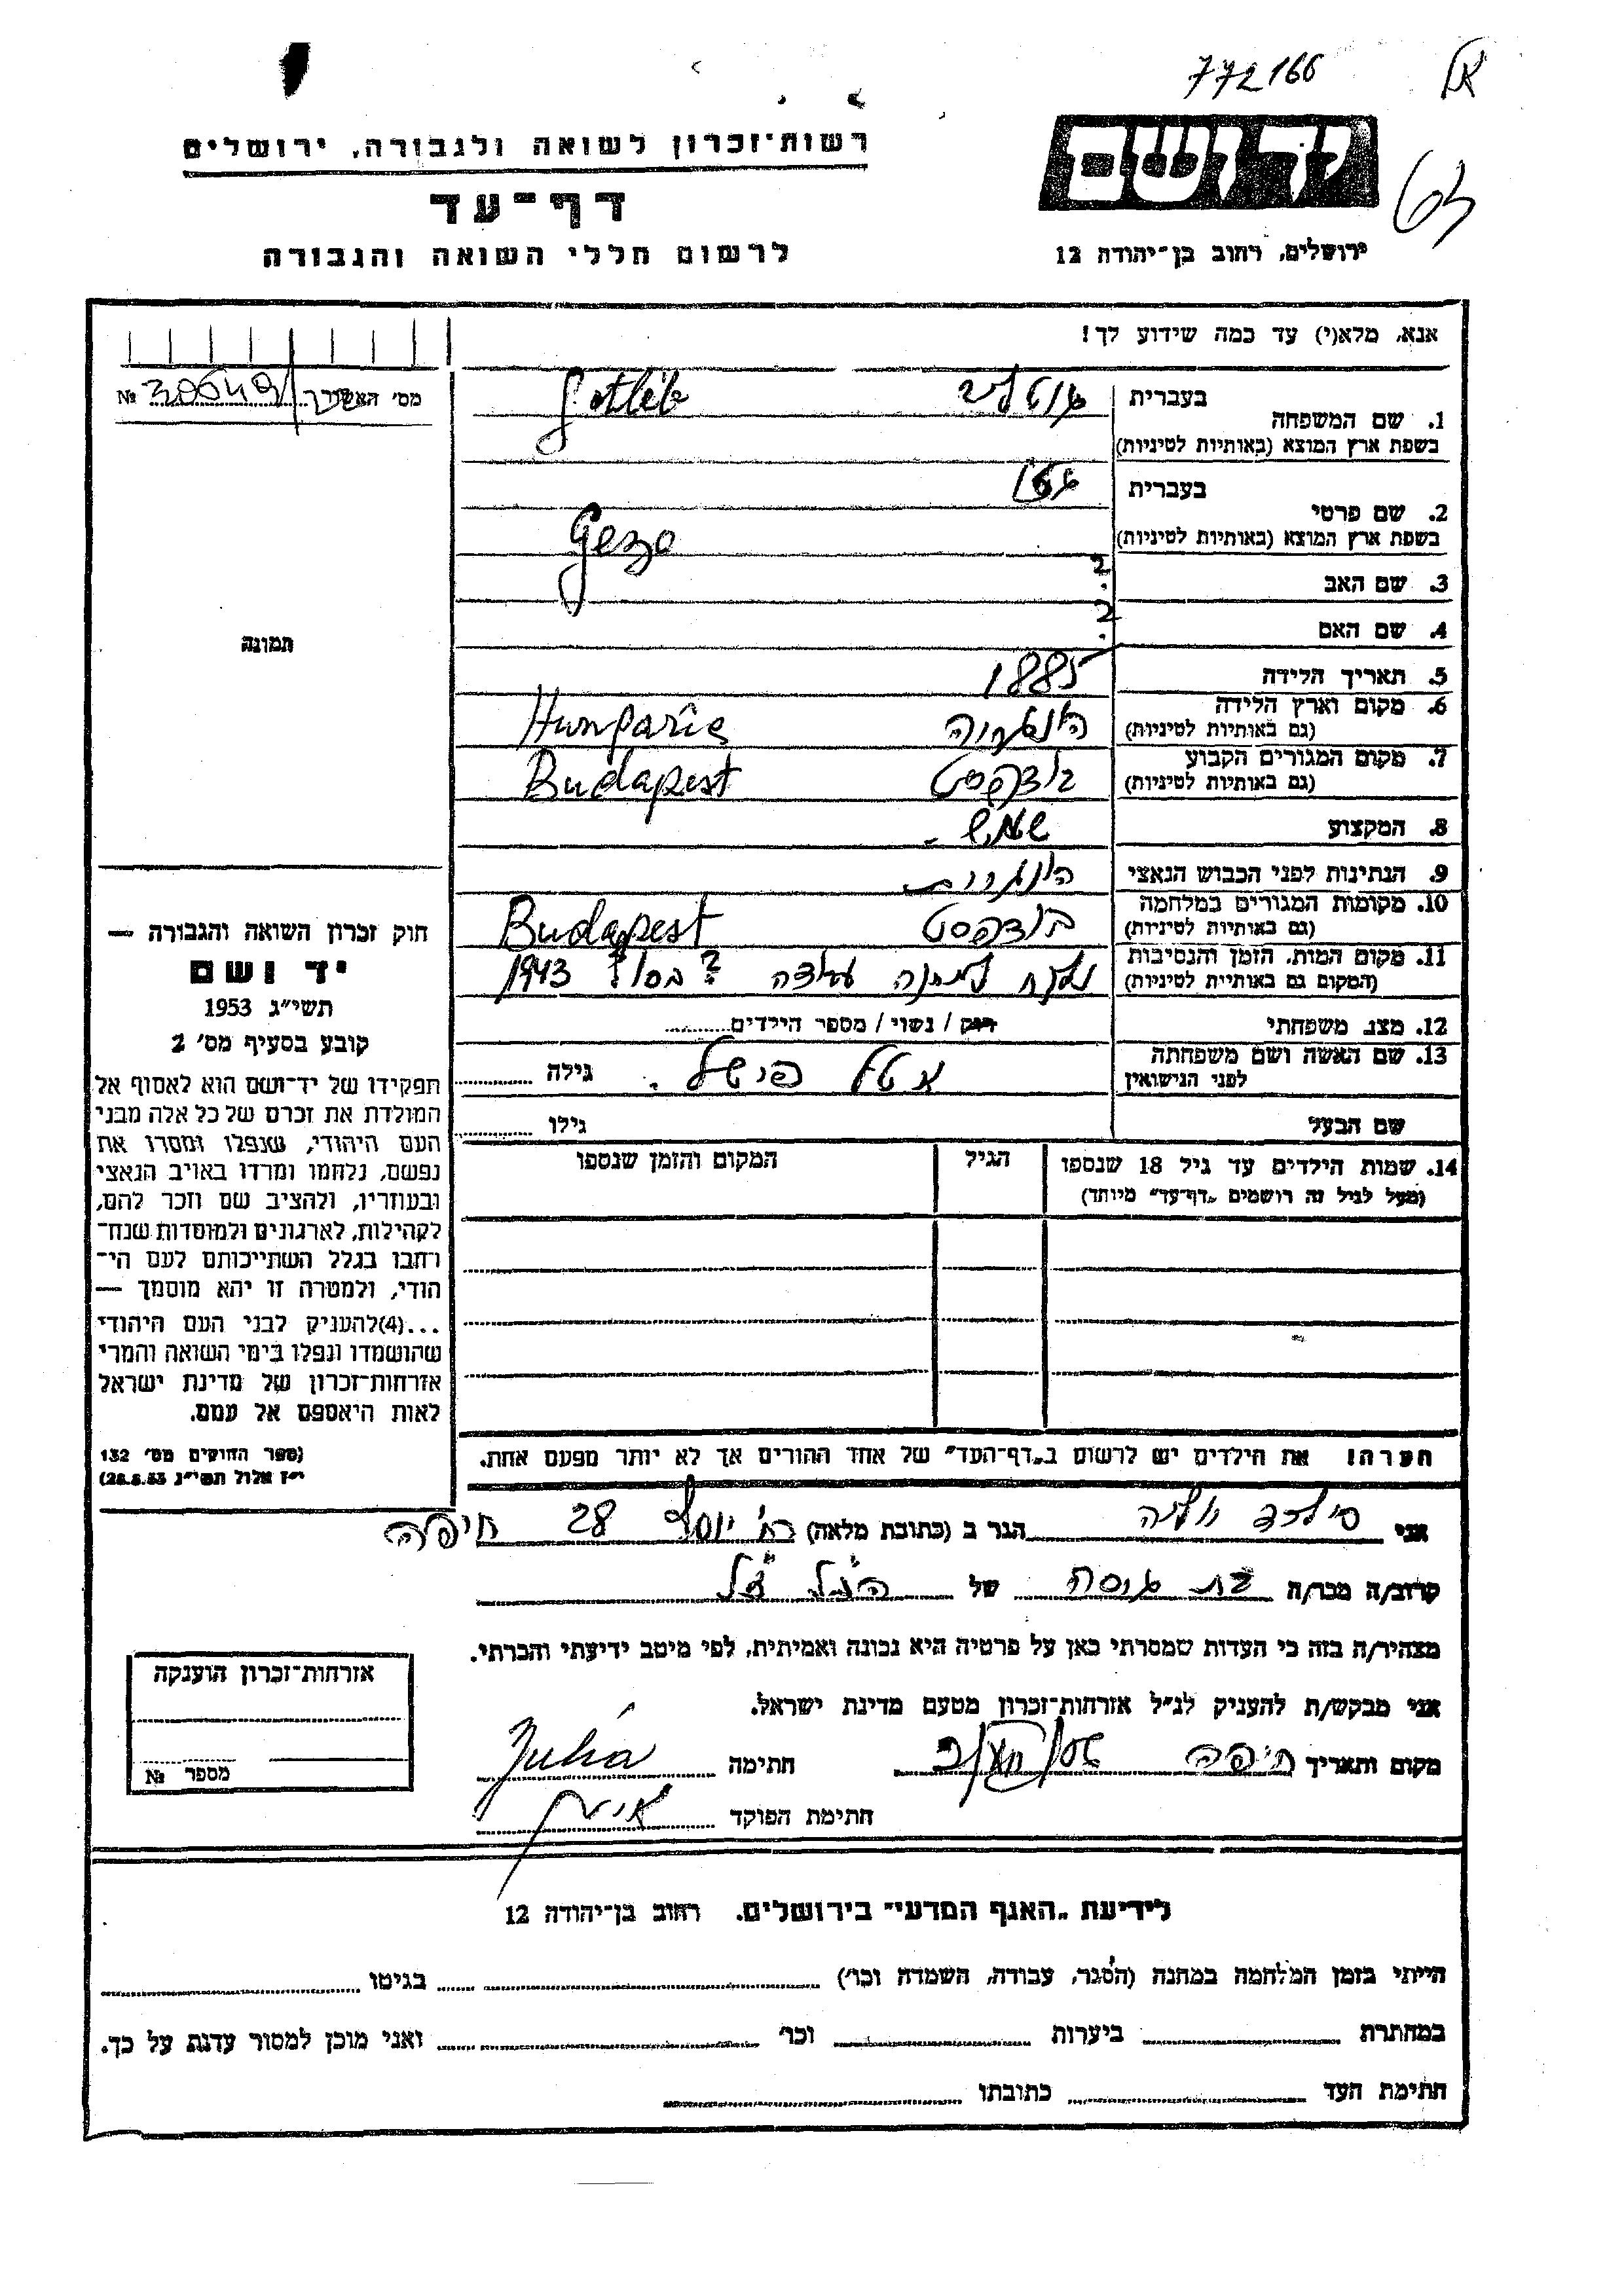 772166
רשות־זכרון לשואה ולגבורה, ירושלים
יד ושם
דף־עד
לרשום חללי השואה והגבורה
ירושלים, רחוב בן־יהודה 12
אנא, מלא(י) עד כמה שידוע לך!
מס׳ האשר №
1. שם המשפחה בעברית גוטליב Gotlib
בשפת ארץ המוצא (באותיות לטיניות)
2. שם פרטי בעברית
בשפת ארץ המוצא (באותיות לטיניות) Geza
3. שם האב ?
4. שם האם ?
תמונה
5. תאריך הלידה 1885
6. מקום וארץ הלידה (גם באותיות לטיניות) הונגריה Hungarie
7. מקום המגורים הקבוע (גם באותיות לטיניות) בודפסט Budapest
8. המקצוע שמש.
9. הנתינות לפני הכבוש הנאצי הונגרית
10. מקומות המגורים במלחמה (גם באותיות לטיניות) בודפסט Budapest
11. מקום המות, הזמן והנסיבות (המקום גם באותיית לטיניות) נלקח למחנה עבודה ? בסוף 1943
12. מצב משפחתי רווק / נשוי / מספר הילדים
13. שם האשה ושם משפחתה לפני הנישואין אטל פישל. גילה
שם הבעל גילו
14. שמות הילדים עד גיל 18 שנספו הגיל המקום והזמן שנספו
(מעל לגיל זה רושמים „דף־עד" מיוחד)
הערה! את הילדים יש לרשום ב„דף־העד" של אחד ההורים אך לא יותר מפעם אחת.
חוק זכרון השואה והגבורה —
יד ושם
תשי״ג 1953
קובע בסעיף מס׳ 2
תפקידו של יד־ושם הוא לאסוף אל
המולדת את זכרם של כל אלה מבני
העם היהודי, שנפלו ומסרו את
נפשם, נלחמו ומרדו באויב הנאצי
ובעוזריו, ולהציב שם וזכר להם,
לקהילות, לארגונים ולמוסדות שנח־
רחבו בגלל השתייכותם לעם הי־
הודי, ולמטרה זו יהא מוסמך —
...(4)להעניק לבני העם היהודי
שהושמדו ונפלו בימי השואה והמרי
אזרחות־זכרון של מדינת ישראל
לאות היאספם אל עמם.
(ספר החוקים מס׳ 132
י״ז אלול תשי״ג 28.8.53)
אני יוליה הגר ב (כתובת מלאה) רח׳ יוסף 28 חיפה
קרוב/ה מכר/ה בת גיסה של הנ״ל ז״ל
מצהיר/ה בזה כי העדות שמסרתי כאן על פרטיה היא נכונה ואמיתית, לפי מיטב ידיעתי והכרתי.
אני מבקש/ת להעניק לנ״ל אזרחות־זכרון מטעם מדינת ישראל.
מקום ותאריך חיפה חתימה Julia
חתימת הפוקד
אזרחות־זכרון הוענקה
מספר №
לידיעת „האגף המדעי" בירושלים. רחוב בן־יהודה 12
הייתי בזמן המלחמה במחנה (הסגר, עבודה, השמדה וכו׳) בגיטו
במחתרת ביערות וכו׳ ואני מוכן למסור עדות על כך.
חתימת העד כתובתו